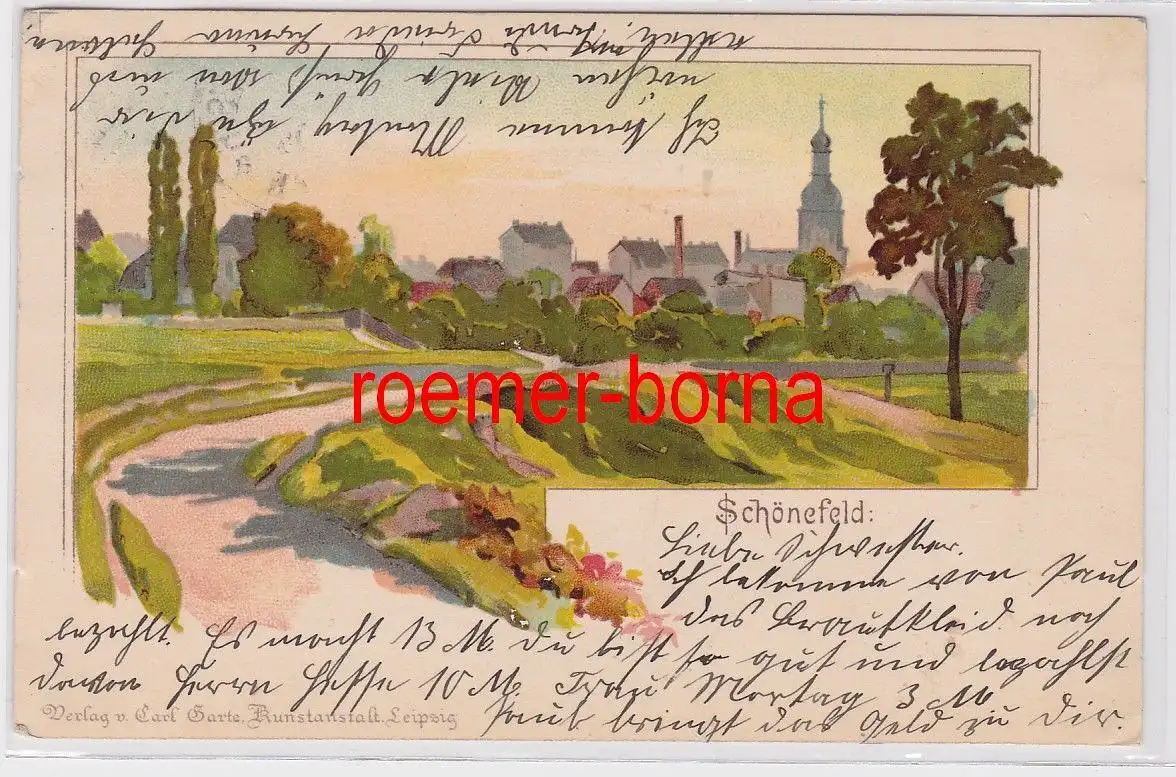 Ich komme Montag zu dir
Gruß von
roemer-borna
Schönefeld:
Liebe Schwester.
Ich bekomme von Paul
das Brautkleid noch
bezahlt. Es macht 13 M. du bist so gut und bezahlst
davon Herrn Hesse 10 M. Frau 3 M
Paul bringt das Geld zu Dir.
Verlag v. Carl Garte, Kunstanstalt, Leipzig